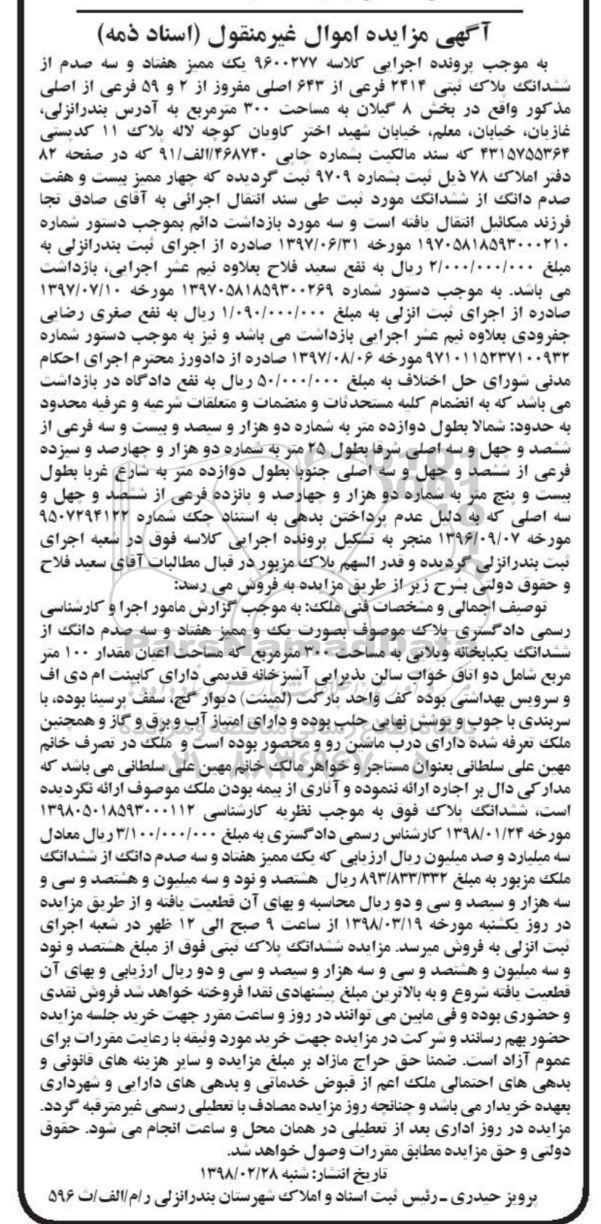 آگهی مزایده اموال غیرمنقول (اسناد ذمه)
به موجب پرونده اجرایی کلاسه ۹۶۰۰۲۷۷ یک ممیز هفتاد و سه صدم از
ششدانگ پلاک ثبتی ۲۴۱۴ فرعی از ۶۴۳ اصلی مفروز از ۲ و ۵۹ فرعی از اصلی
مذکور واقع در بخش ۸ گیلان به مساحت ۳۰۰ مترمربع به آدرس بندرانزلی،
غازیان، خیابان، معلم، خیابان شهید اختر کاویان کوچه لاله پلاک ۱۱ کدپستی
۴۳۱۵۷۵۵۳۶۴ که سند مالکیت بشماره چاپی ۴۶۸۷۴۰/الف/۹۱ که در صفحه ۸۲
دفتر املاک ۷۸ ذیل ثبت بشماره ۹۷۰۹ ثبت گردیده که چهار ممیز بیست و هفت
صدم دانگ از ششدانگ مورد ثبت طی سند انتقال اجرائی به آقای صادق تجا
فرزند میکائیل انتقال یافته است و سه مورد بازداشت دائم بموجب دستور شماره
۱۹۷۰۵۸۱۸۵۹۳۰۰۰۲۱۰ مورخه ۱۳۹۷/۰۶/۳۱ صادره از اجرای ثبت بندرانزلی به
مبلغ ۲/۰۰۰/۰۰۰/۰۰۰ ریال به نفع سعید فلاح بعلاوه نیم عشر اجرایی، بازداشت
می باشد. به موجب دستور شماره ۱۳۹۷۰۵۸۱۸۵۹۳۰۰۲۶۹ مورخه ۱۳۹۷/۰۷/۱۰
صادره از اجرای ثبت انزلی به مبلغ ۱/۰۹۰/۰۰۰/۰۰۰ ریال به نفع صغری رضایی
جفرودی بعلاوه نیم عشر اجرایی بازداشت می باشد و نیز به موجب دستور شماره
۹۷۱۰۱۱۵۲۳۷۱۰۰۹۳۲ مورخه ۱۳۹۷/۰۸/۰۶ صادره از دادورز محترم اجرای احکام
مدنی شورای حل اختلاف به مبلغ ۵۰/۰۰۰/۰۰۰ ریال به نفع دادگاه در بازداشت
می باشد که به انضمام کلیه مستحدثات و منضمات و متعلقات شرعیه و عرفیه محدود
به حدود: شمالا بطول دوازده متر به شماره دو هزار و سیصد و بیست و سه فرعی از
ششصد و چهل و سه اصلی شرقا بطول ۲۵ متر به شماره دو هزار و چهارصد و سیزده
فرعی از ششصد و چهل و سه اصلی جنوبا بطول دوازده متر به شارع غربا بطول
بیست و پنج متر به شماره دو هزار و چهارصد و پانزده فرعی از ششصد و چهل و
سه اصلی که به دلیل عدم پرداختن بدهی به استناد چک شماره ۹۵۰۷۲۹۴۱۲۲
مورخه ۱۳۹۶/۰۹/۰۷ منجر به تشکیل پرونده اجرایی کلاسه فوق در شعبه اجرای
ثبت بندرانزلی گردیده و قدر السهم پلاک مزبور در قبال مطالبات آقای سعید فلاح
و حقوق دولتی بشرح زیر از طریق مزایده به فروش می رسد:
توصیف اجمالی و مشخصات فنی ملک: به موجب گزارش مامور اجرا و کارشناسی
رسمی دادگستری پلاک موصوف بصورت یک و ممیز هفتاد و سه صدم دانگ از
ششدانگ یکبابخانه ویلایی به مساحت ۳۰۰ مترمربع که مساحت اعیان مقدار ۱۰۰ متر
مربع شامل دو اتاق خواب سالن پذیرایی آشپزخانه قدیمی دارای کابینت ام دی اف
و سرویس بهداشتی بوده کف واحد پارکت (لمینت) دیوار گچ، سقف پرسینا بوده، با
سربندی با چوب و پوشش نهایی حلب بوده و دارای امتیاز آب و برق و گاز و همچنین
ملک تعرفه شده دارای درب ماشین رو و محصور بوده است و ملک در تصرف خانم
مهین علی سلطانی بعنوان مستاجر و خواهر مالک خانم مهین علی سلطانی می باشد که
مدارکی دال بر اجاره ارائه ننموده و آثاری از بیمه بودن ملک موصوف ارائه نگردیده
است، ششدانگ پلاک فوق به موجب نظریه کارشناسی ۱۳۹۸۰۵۰۱۸۵۹۳۰۰۰۱۱۲
مورخه ۱۳۹۸/۰۱/۲۴ کارشناس رسمی دادگستری به مبلغ ۳/۱۰۰/۰۰۰/۰۰۰ ریال معادل
سه میلیارد و صد میلیون ریال ارزیابی که یک ممیز هفتاد و سه صدم دانگ از ششدانگ
ملک مزبور به مبلغ ۸۹۳/۸۳۳/۳۳۲ ریال هشتصد و نود و سه میلیون و هشتصد و سی و
سه هزار و سیصد و سی و دو ریال محاسبه و بهای آن قطعیت یافته و از طریق مزایده
در روز یکشنبه مورخه ۱۳۹۸/۰۳/۱۹ از ساعت ۹ صبح الی ۱۲ ظهر در شعبه اجرای
ثبت انزلی به فروش میرسد. مزایده ششدانگ پلاک ثبتی فوق از مبلغ هشتصد و نود
و سه میلیون و هشتصد و سی و سه هزار و سیصد و سی و دو ریال ارزیابی و بهای آن
قطعیت یافته شروع و به بالاترین مبلغ پیشنهادی نقدا فروخته خواهد شد فروش نقدی
و حضوری بوده و فی مابین می توانند در روز و ساعت مقرر جهت خرید جلسه مزایده
حضور بهم رسانند و شرکت در مزایده جهت خرید مورد وثیقه با رعایت مقررات برای
عموم آزاد است. ضمنا حق حراج مازاد بر مبلغ مزایده و سایر هزینه های قانونی و
بدهی های احتمالی ملک اعم از قبوض خدماتی و بدهی های دارایی و شهرداری
بعهده خریدار می باشد و چنانچه روز مزایده مصادف با تعطیلی رسمی غیرمترقبه گردد.
مزایده در روز اداری بعد از تعطیلی در همان محل و ساعت انجام می شود. حقوق
دولتی و حق مزایده مطابق مقررات وصول خواهد شد.
تاریخ انتشار: شنبه ۱۳۹۸/۰۲/۲۸
پرویز حیدری ـ رئیس ثبت اسناد و املاک شهرستان بندرانزلی ر/م/الف/ث ۵۹۶